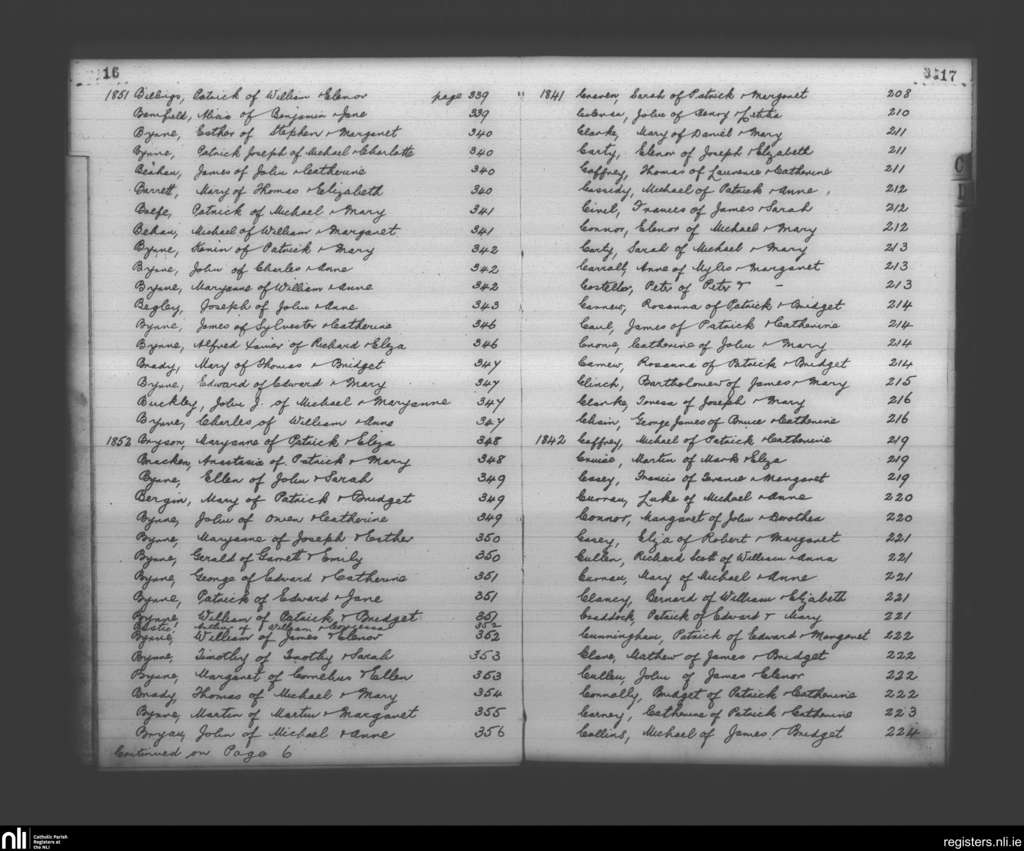 16
1851 Billings, Patrick of William & Elenor page 339
Bamfield, Alicia of Benjamin & Jane 339
Byrne, Esther of Stephen & Margaret 340
Byrne, Patrick Joseph of Michael & Charlotte 340
Beahan, James of John & Catherine 340
Barrett, Mary of Thomas & Elizabeth 340
Patrick of Michael & Mary 341
Behan, Michael of William & Margaret 341
Byrne, of Patrick & Mary 342
Byrne, John of Charles & Anne 342
Byrne, Maryanne of William & Anne 342
Begley, Joseph of John & Anne 343
Byrne, James of Sylvester & Catherine 346
Byrne, Alfred Xavier of Richard & Eliza 346
Brady, Mary of Thomas & Bridget 347
Byrne, Edward of Edward & Mary 347
Buckley, John J. of Michael & Maryanne 347
Byrne, Charles of William & Anne 347
1852 Bryson, Maryanne of Patrick & Eliza 348
Bracken, Anastasia of Patrick & Mary 348
Byrne, Ellen of John & Sarah 349
Bergin, Mary of Patrick & Bridget 349
Byrne, John of Owen & Catherine 349
Byrne, Maryanne of Joseph & Esther 350
Byrne, Gerald of Garrett & Emily 350
Byrne, George of Edward & Catherine 351
Byrne, Patrick of Edward & Jane 351
Byrne, William of Patrick & Bridget 351
of William & Georgessa 352
Byrne, William of James & Elenor 352
Byrne, Timothy of Timothy & Sarah 353
Byrne, Margaret of Cornelius & Ellen 353
Brady, Thomas of Michael & Mary 354
Byrne, Martin of Martin & Margaret 355
Bryan, John of Michael & Anne 356
Continued on Page 6
17
1841 Craven, Sarah of Patrick & Margaret 208
Julia of Henry & Letitia 210
Clarke, Mary of Daniel & Mary 211
Carty, Elenor of Joseph & Elizabeth 211
Caffrey, Thomas of Laurence & Catherine 211
Cassidy, Michael of Patrick & Anne 212
Frances of James & Sarah 212
Connor, Elenor of Michael & Mary 212
Carty, Sarah of Michael & Mary 213
Carroll, Anne of Myles & Margaret 213
Costello, Peter of Peter & - 213
Carnew, Rosanna of Patrick & Bridget 214
James of Patrick & Catherine 214
Crone, Catherine of John & Mary 214
Carnew, Rosanna of Patrick & Bridget 214
Clinch, Bartholomew of James & Mary 215
Clarke, Teresa of Joseph & Mary 216
George James of Bruce & Catherine 216
1842 Caffrey, Michael of Patrick & Catherine 219
Cruise, Martin of Mark & Eliza 219
Casey, Francis of Terence & Margaret 219
Curran, Luke of Michael & Anne 220
Connor, Margaret of John & Dorothea 220
Casey, Eliza of Robert & Margaret 221
Cullen, Richard Scott of William & Anna 221
Curran, Mary of Michael & Anne 221
Clancy, Bernard of William & Elizabeth 221
Craddock, Patrick of Edward & Mary 221
Cunningham, Patrick of Edward & Margaret 222
Clare, Mathew of James & Bridget 222
Cullen, John of James & Elenor 222
Connelly, Bridget of Patrick & Catherine 222
Carney, Catherine of Patrick & Catherine 223
Collins, Michael of James & Bridget 224
C
D
nli Catholic Parish
Registers at
the NLI
registers.nli.ie